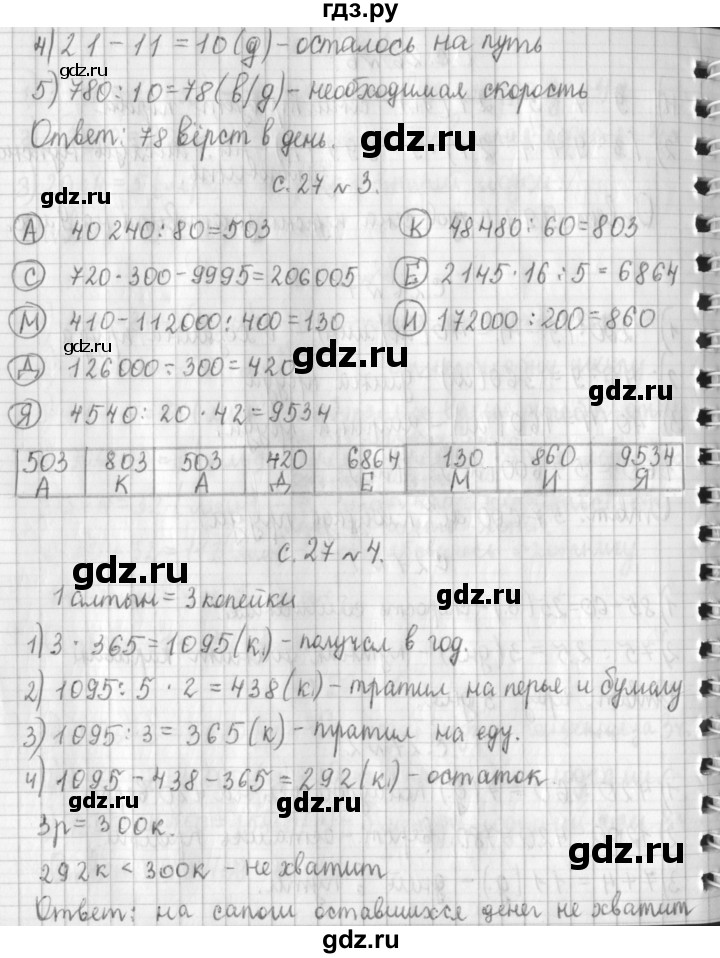 гдз.ру
4) 21 - 11 = 10 (д) - осталось на путь
5) 780 : 10 = 78 (в/д) - необходимая скорость
Ответ: 78 вёрст в день.
gdz.ru
gdz.ru
с. 27 № 3.
А 40 240 : 80 = 503
К 48480 : 60 = 803
gdz.ru
С 720 · 300 - 9995 = 206005
Е 2145 · 16 : 5 = 6864
gdz.ru
М 410 - 112000 : 400 = 130
И 172000 : 200 = 860
gdz.ru
gdz.ru
Д 126000 : 300 = 420
Я 4540 : 20 · 42 = 9534
503 803 503 420 6864 130 860 9534
А К А Д Е М И Я
gdz.ru
с. 27 № 4.
gdz.ru
gdz.ru
1 алтын = 3 копейки
1) 3 · 365 = 1095 (к.) - получал в год.
2) 1095 : 5 · 2 = 438 (к.) - тратил на перье и бумагу
3) 1095 : 3 = 365 (к) - тратил на еду.
gdz.ru
4) 1095 - 438 - 365 = 292 (к.) - остаток.
gdz.ru
3р = 300к.
gdz.ru
292к < 300к - не хватит
gdz.ru
Ответ: на сапоги оставшихся денег не хватит
gdz.ru